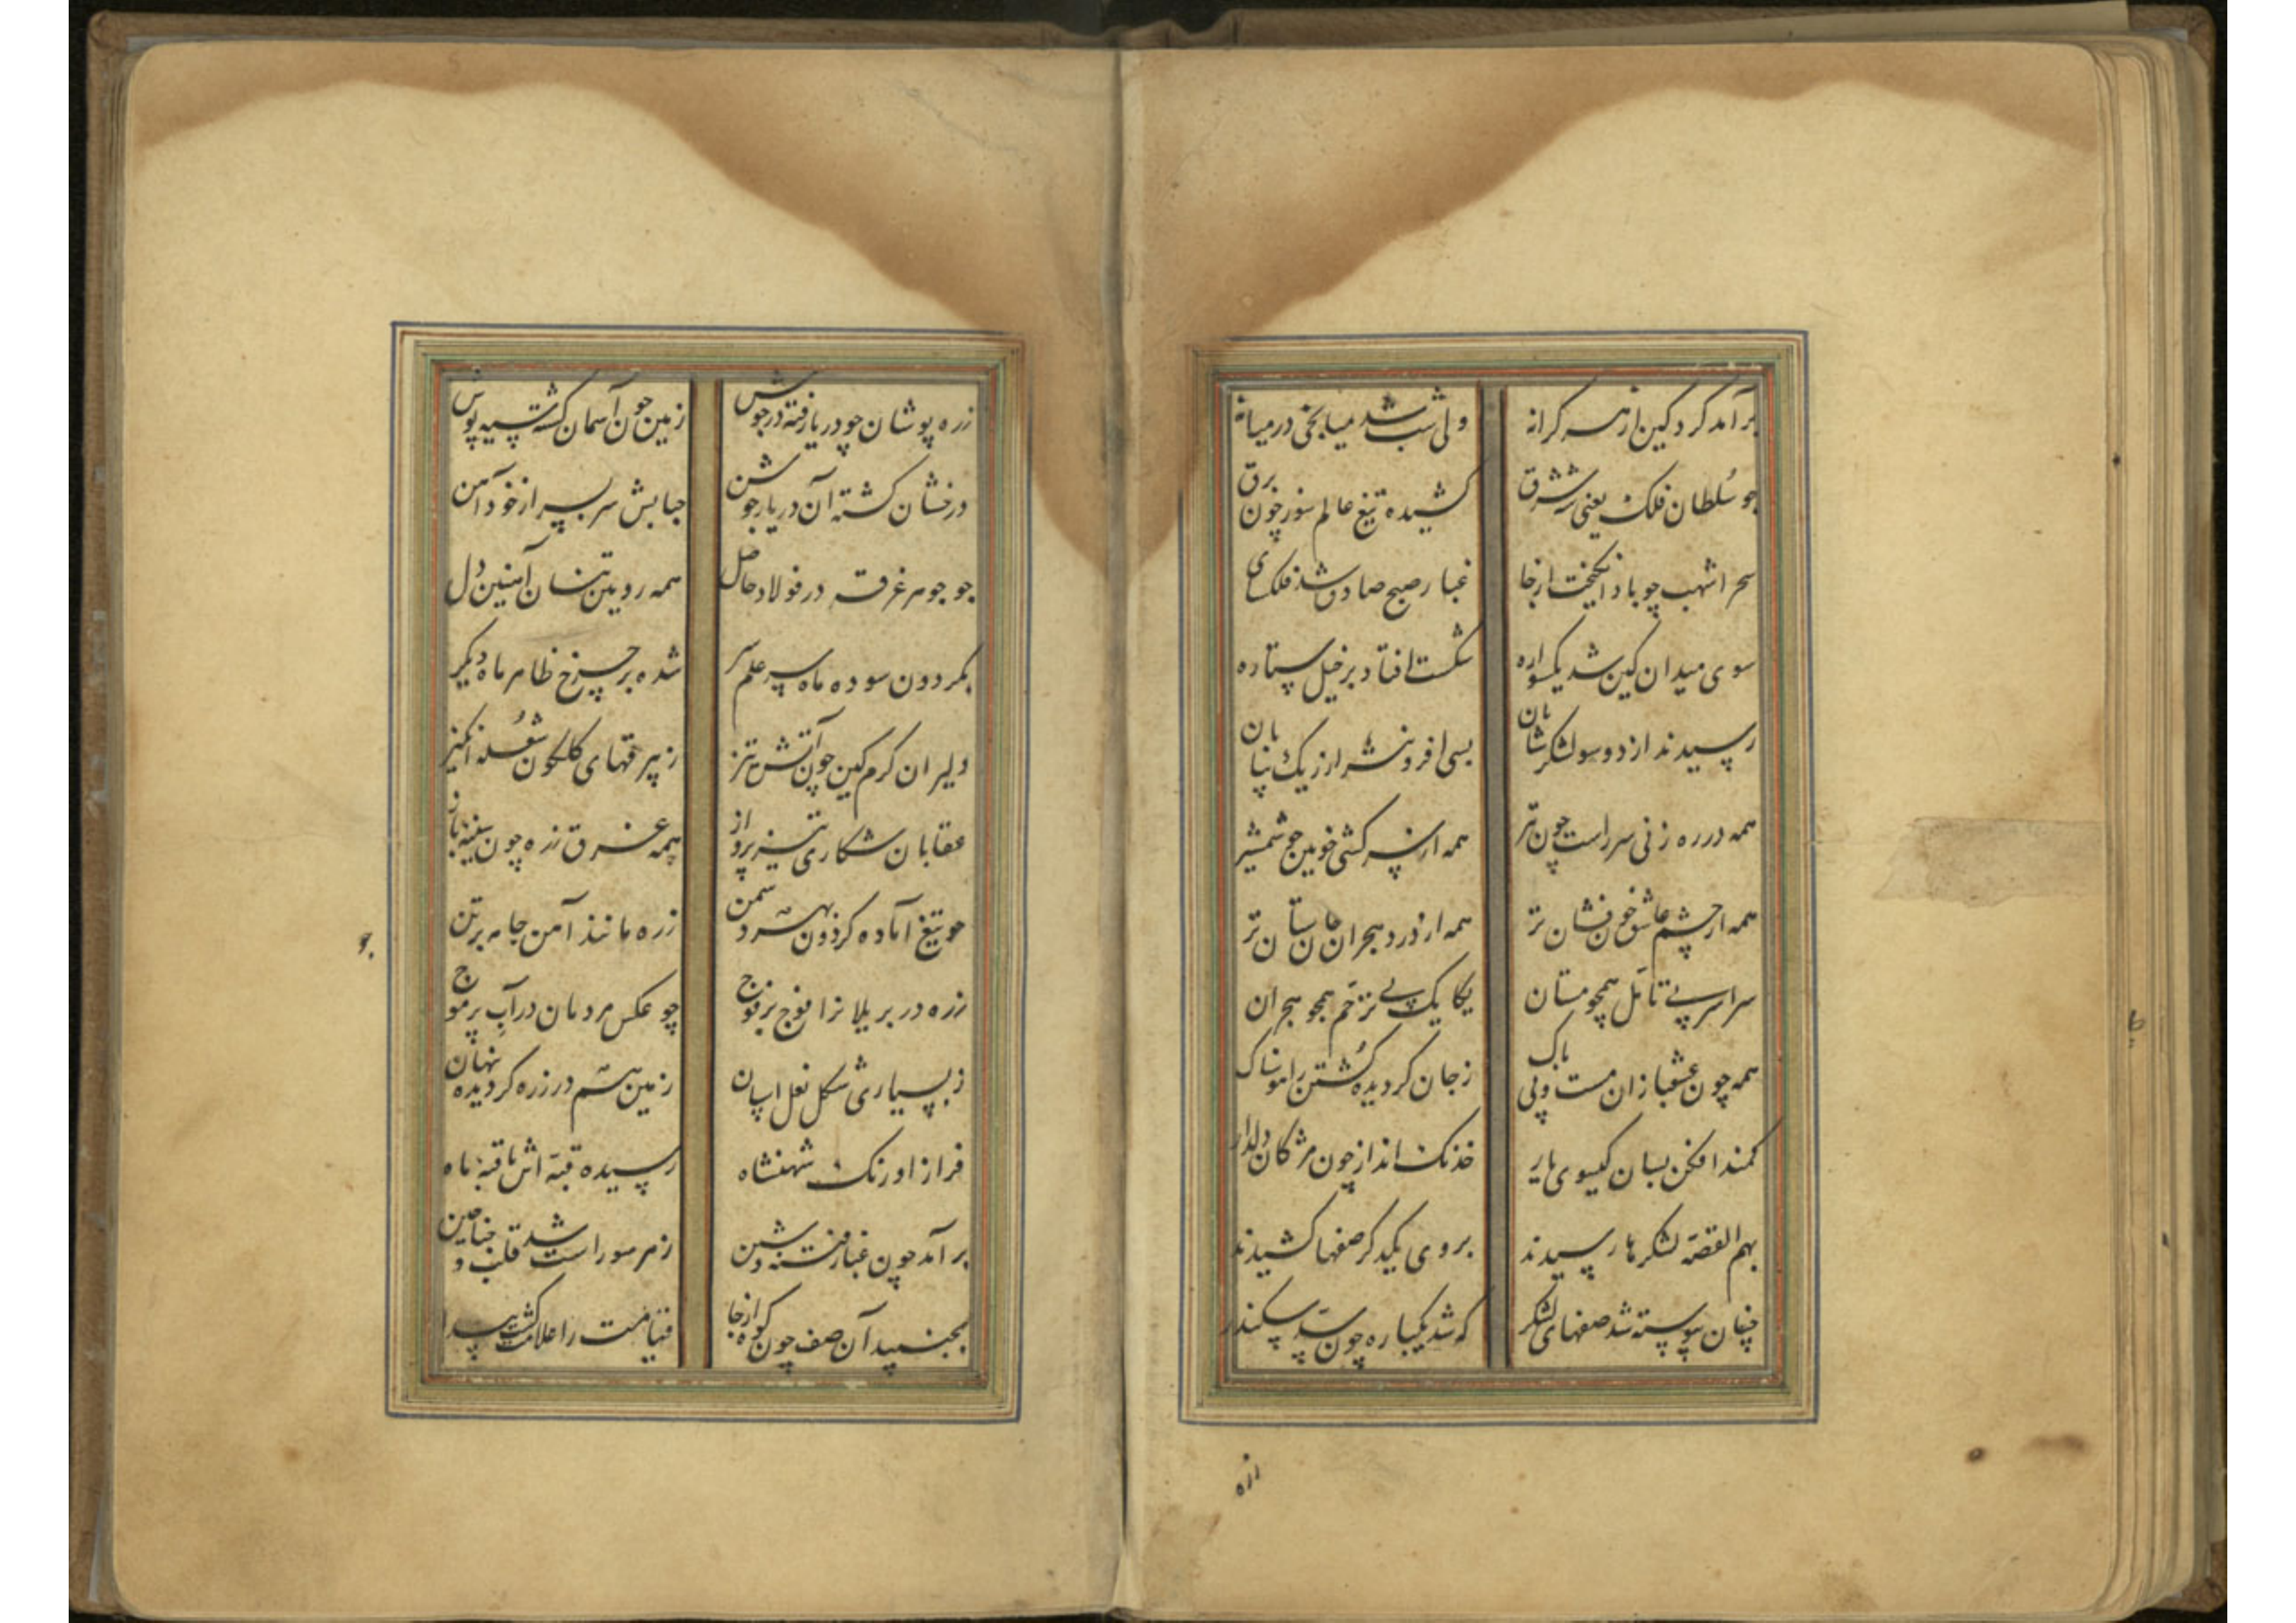 برآمد کرد کین از هر کرانه
ولی شب شد میانجی در میانه
چو سلطان فلک یعنی شه شرق
کشیده تیغ عالم سوز چون برق
سحر اشهب چو باد انکیخت از جای
غبار صبح صادق شد فلک سای
سوی میدان کین شد یکسواره
شکست افتاد بر خیل ستاره
رسیدند از دو سو لشکر شتابان
بسی افزونتر از ریک بیابان
همه در ره زنی سر راست چون تیر
همه از سر کشی خونین چو شمشیر
همه از چشم عاشق خون فشان تر
همه از درد هجران جان ستان تر
سراسر بی تامل همچو مستان
یکایک بی ترحم همچو هجران
همه چون عشقبازان مست و بی باک
ز جان کردیده کشتن را هوسناک
کمند افکن بسان کیسوی یار
خدنک انداز چون مژکان دلدار
بهم القصه لشکرها رسیدند
بروی یکدکر صفها کشیدند
چنان پیوسته شد صفهای لشکر
که شد یکباره چون سد سکندر
زره
زره پوشان چو دریا رفته در جوش
زمین چون آسمان کشته سیه پوش
درخشان کشته آن دریا ز جوشن
حبابش سر بسر از خود آهن
چو جوهر غرقه در فولاد حاصل
همه رویین تنان آهنین دل
بکردون سوده ماه سر علم سر
شده بر چرخ ظاهر ماه دیکر
دلیران کرم کین چون آتش تیز
ز بیرقهای کلکون شعله انکیز
عقابان شکاری تیز پرواز
همه غرق زره چون سینه باز
چو تیغ آماده کردون بهر دشمن
زره مانند آهن جامه بر تن
زره در بر یلان را فوج بر فوج
چو عکس مردمان در آب پر موج
ز بسیاری شکل نعل اسپان
زمین هم در زره کردیده پنهان
فراز اورنک شهنشاه
رسیده قبه اش تا قبه ماه
برآمد چون غبار فتنه و شین
ز هر سو راست شد قلب و جناحین
بجنبید آن صف چون کوه از جا
قیامت را علامت کشت پیدا